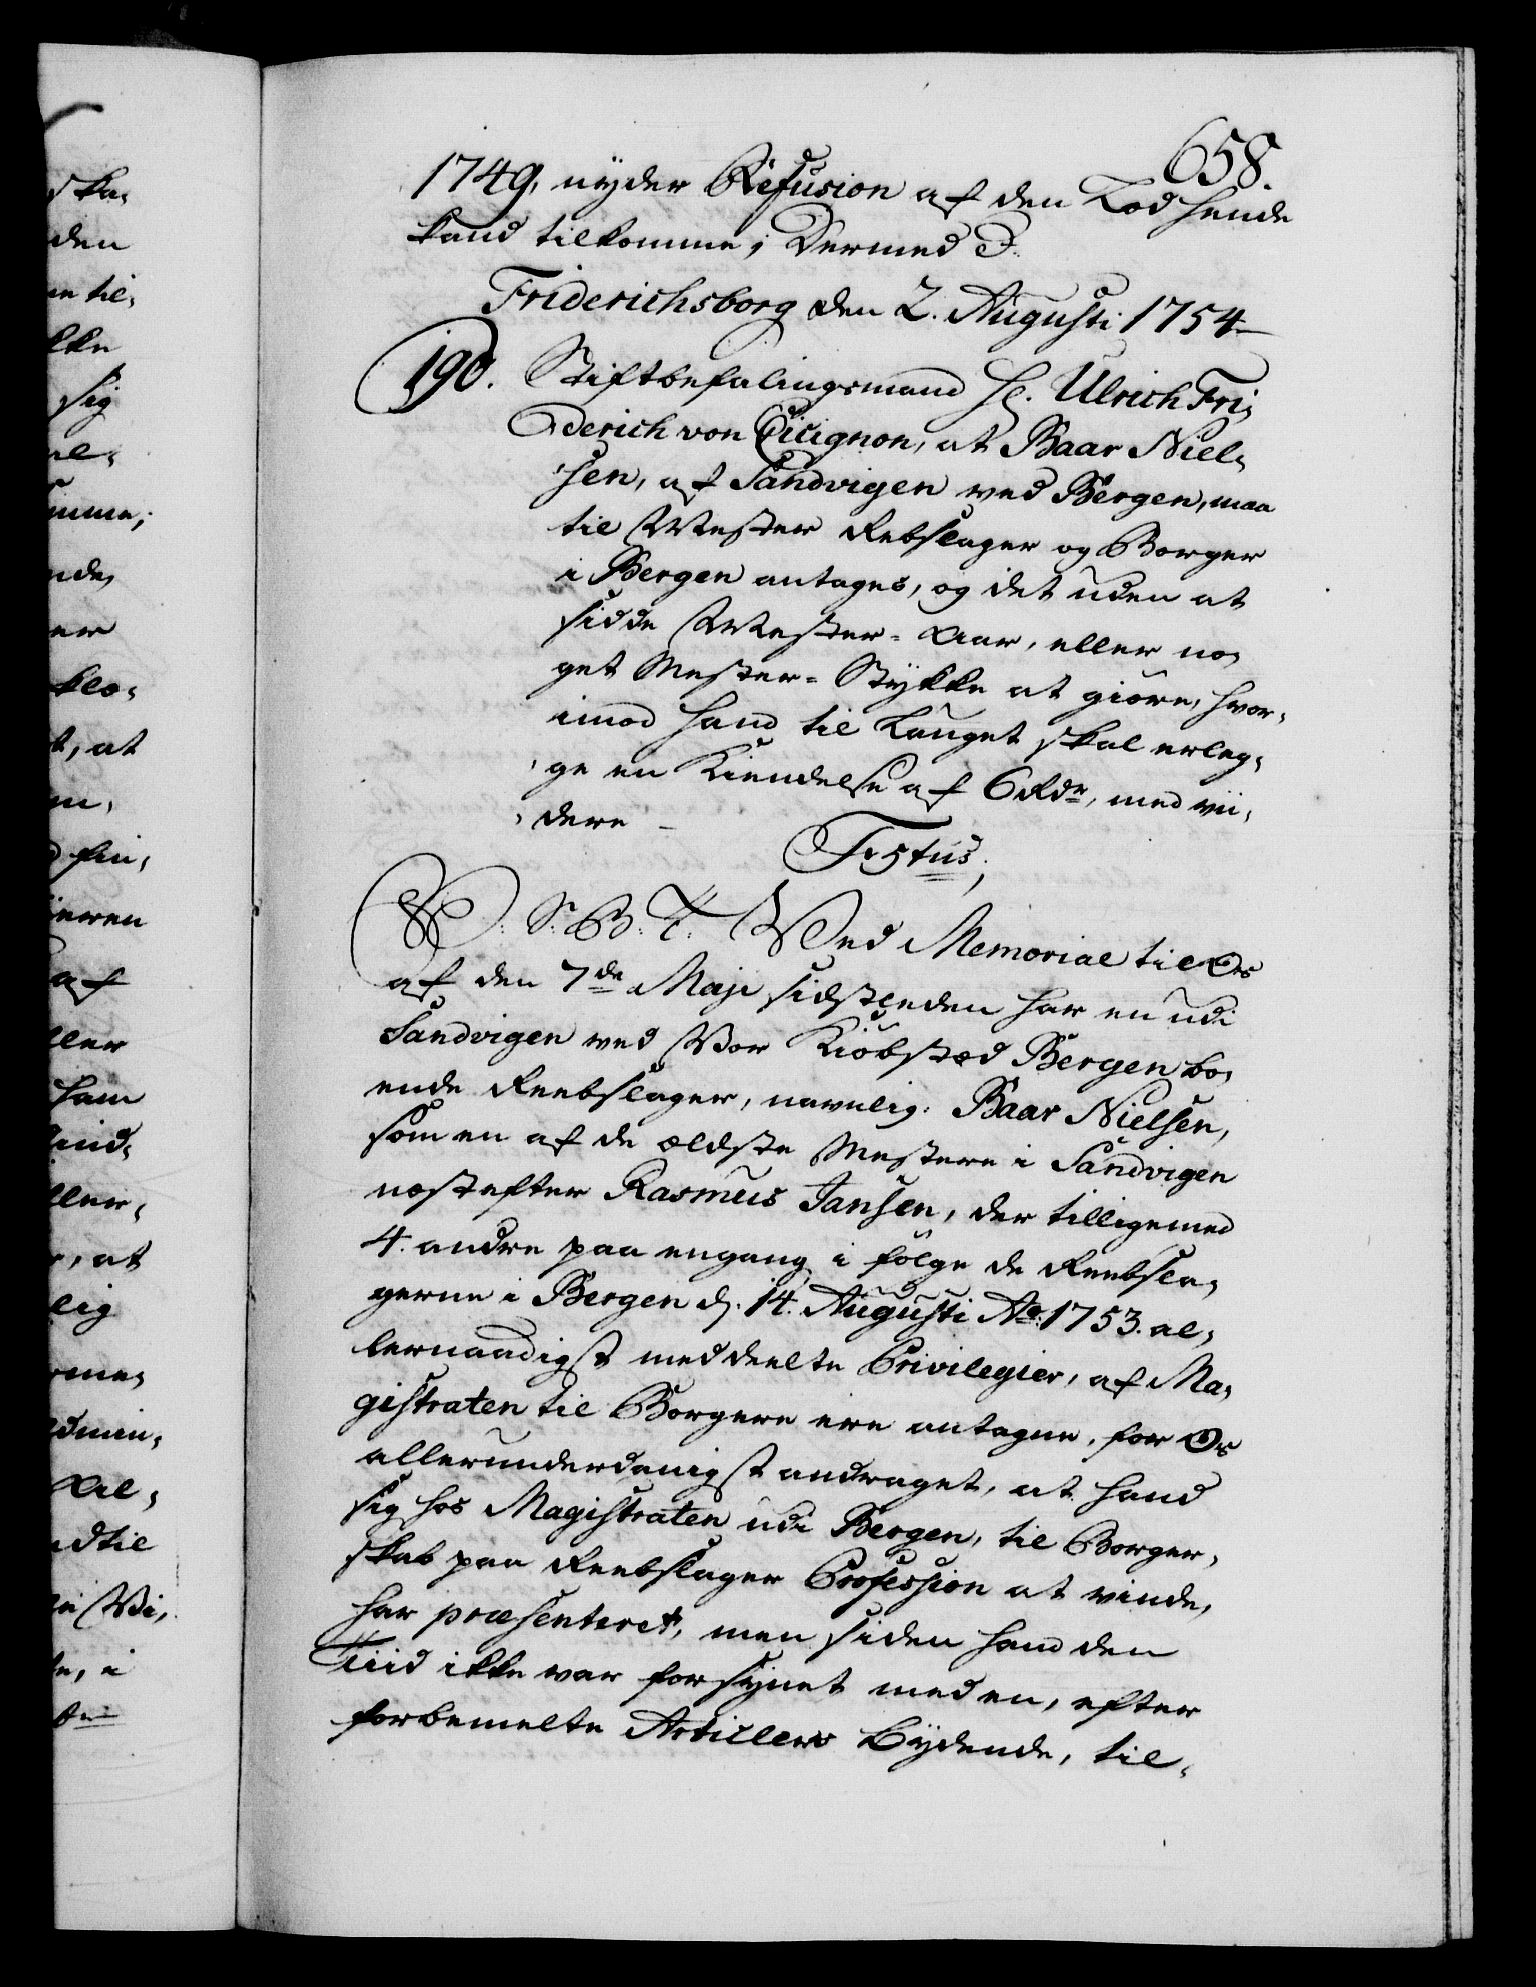 658.
1749, nyder Refusion af den Lod hende
kand tilkomme; Dermed
Friderichsborg den 2. Augusti 1754
190. Stiftbefalingsmand Hr. Ulrich Fri,
derich von Cicignon, at Baar Niel,
sen, af Sandvigen ved Bergen, maa
til Mester Rebslager og Borger
i Bergen antages, og det uden at
sidde Mester-Aar, eller no,
get Mester-Stykke at giøre, hvor,
imod hand til Lauget skal erleg,
ge en Kiendelse af 6 Rdr, med vii,
dere
Festus;
S: B: T. Ved Memorial til Os
af den 7de Maji sidstleden har en udi
Sandvigen ved Vor Kiøbstæd Bergen bo,
ende Reebslager, navnlig: Baar Nielsen,
som en af de ældste Mestere i Sandvigen
næst efter Rasmus Jansen, der tilligemed
4. andre paa engang i følge de Reebsla,
gerne i Bergen d. 14. Augusti Ao: 1753. al,
lernaadigst meddeelte Privilegier, af Ma,
gistraten til Borgere ere antagne, for Os
allerunderdanigst andraget, at hand
sig hos Magistraten udi Bergen, til Borger,
skab paa Reebslager Profession at vinde,
har præsenteret, men siden hand den
Tiid ikke var forsynet med en, efter
forbemelte Articlers Lydende, til,